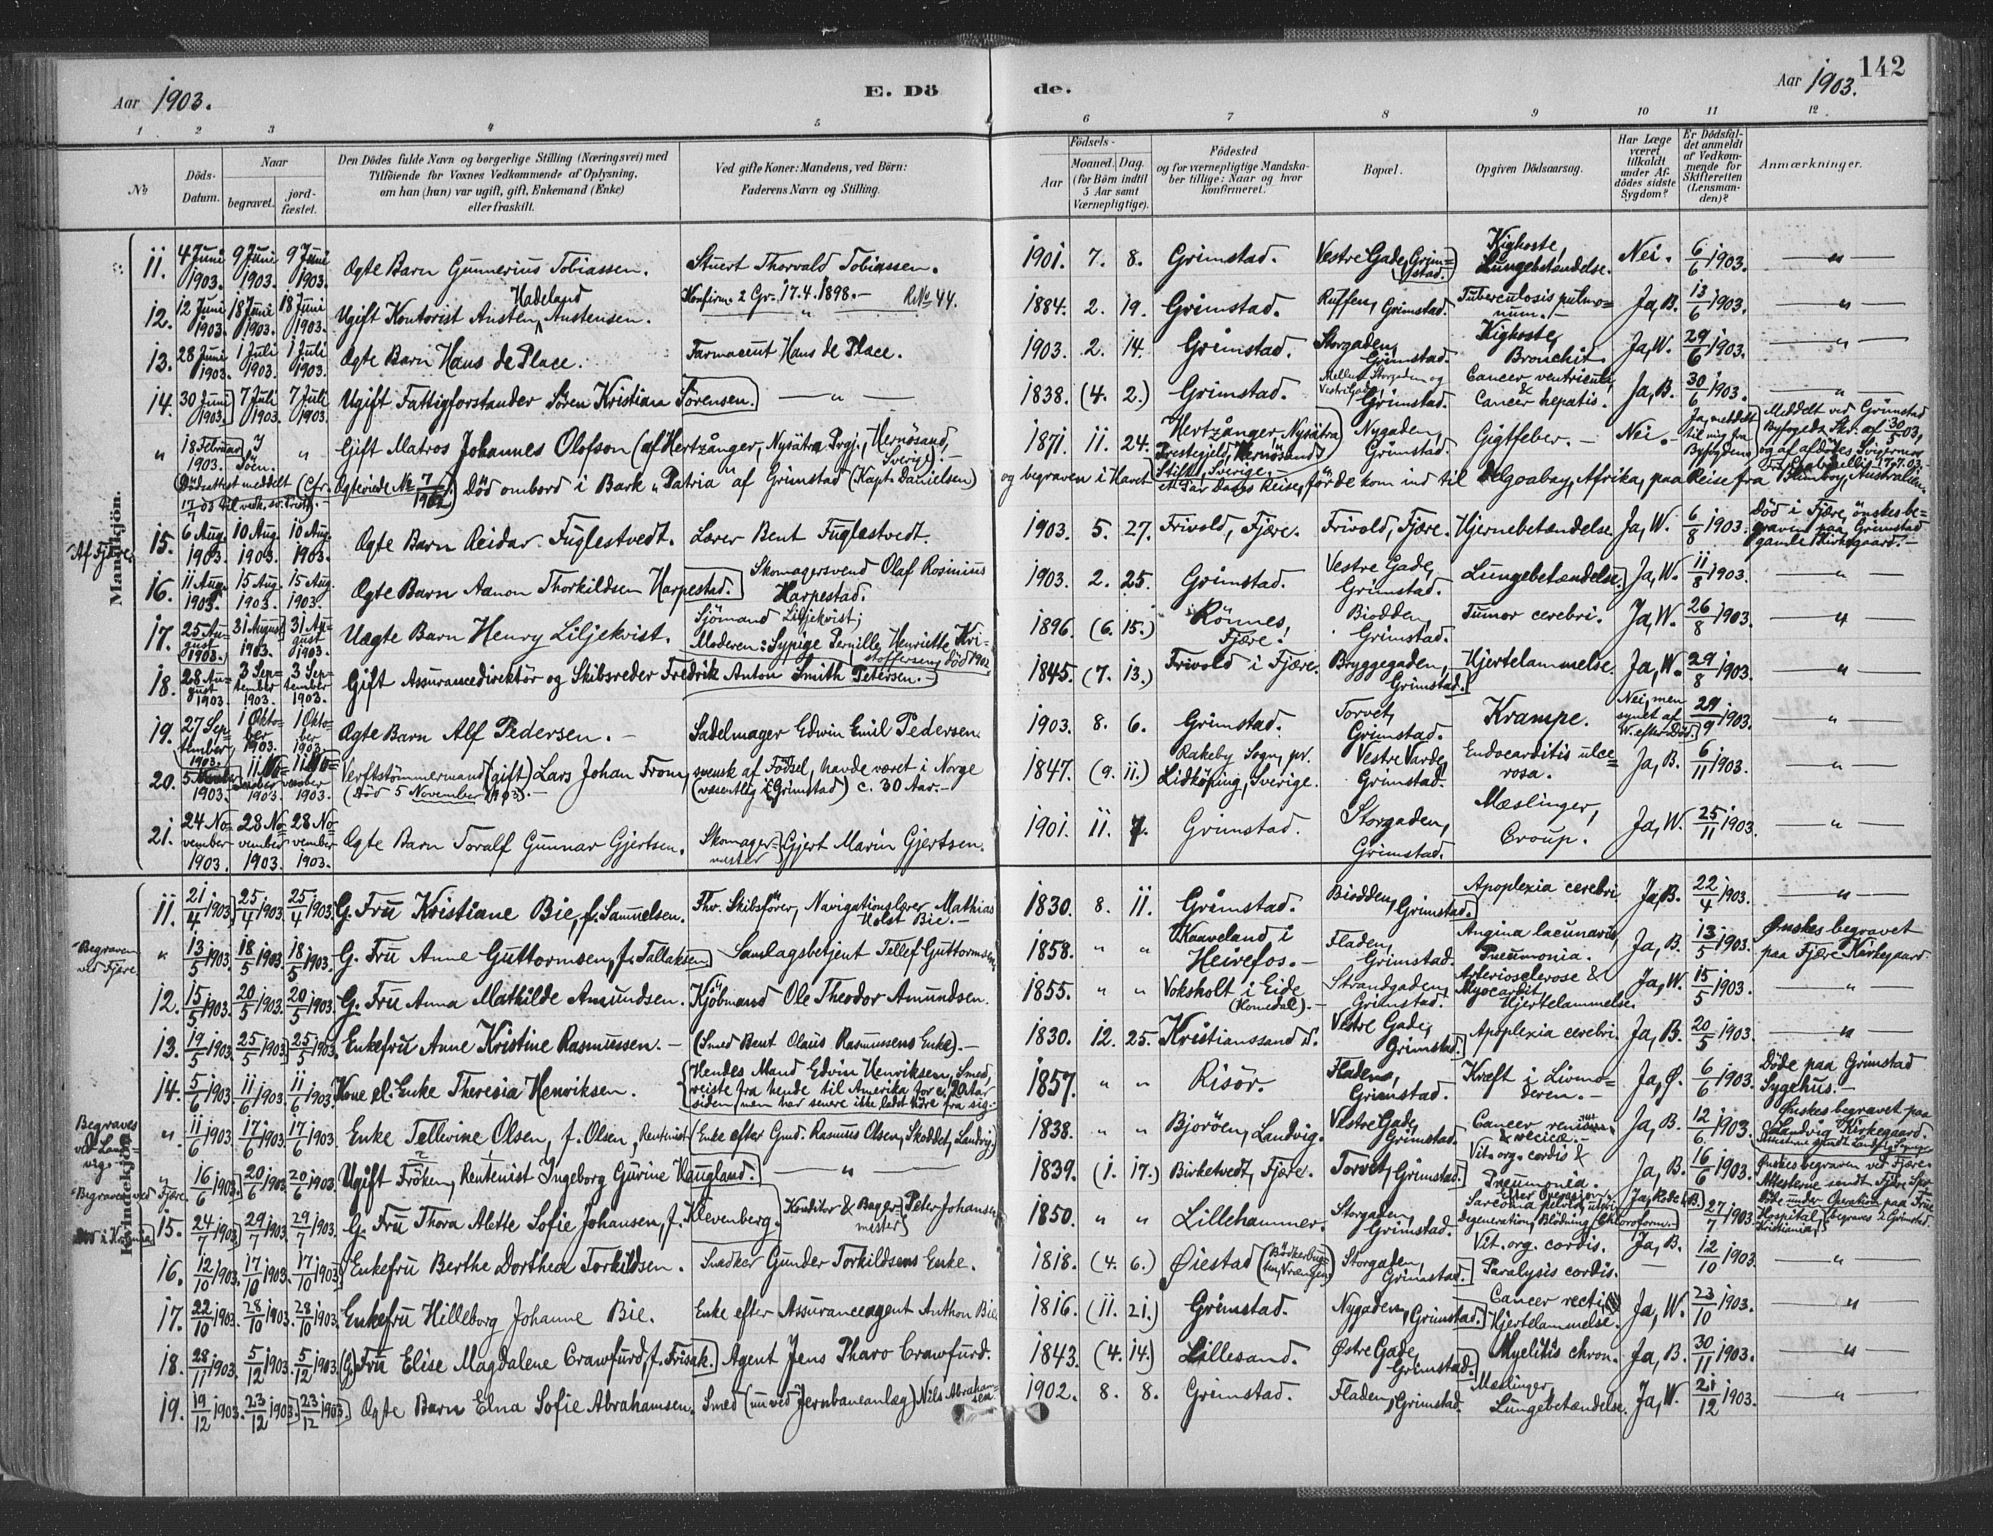 Aar 1903.
E. Dö
de.
Aar 1903.
142
1 2 3 4 5 6 7 8 9 10 11 12
№
Döds-Datum.
Naar
begravet.
jordfæstet.
Den Dödes fulde Navn og borgerlige Stilling (Næringsvei) med
Tilföiende for Voxnes Vedkommende af Oplysning,
om han (hun) var ugift, gift, Enkemand (Enke)
eller fraskilt.
Ved gifte Koner: Mandens, ved Börn:
Faderens Navn og Stilling.
Födsels-
Aar
Maaned. Dag.
(for Börn indtil
5 Aar samt
Værnepligtige).
Födested
og for værnepligtige Mandskaber tillige: Naar og hvor
konfirmeret.
Bopæl.
Opgiven Dödsaarsag.
Har Læge
været
tilkaldt
under Afdödes sidste
Sygdom?
Er Dödsfaldet anmeldt
af Vedkommende for
Skifteretten
(Lensmanden)?
Anmærkninger.
Mandkjön.
11. 4 Juni 1903. 9 Juni 1903. 9 Juni 1903. Ægte Barn Gunnerius Tobiassen. Stuert Thorvald Tobiassen. 1901. 7. 8. Grimstad. Vestre Gade, Grimstad. Kighoste, Lungebetændelse. Nei. 6/6 1903. — " —
12. 12 Juni 1903. 18 Juni 1903. 18 Juni 1903. Ugift Kontorist Austen Hadeland Austensen. Konfirm. 2 Gr. 17.4.1898. — R. № 44. 1884. 2. 19. Grimstad. Ruffen, Grimstad. Tuberculosis pulmonum. Ja, B. 13/6 1903. "
13. 28 Juni 1903. 1 Juli 1903. 1 Juli 1903. Ægte Barn Hans de Place. Farmaceut Hans de Place. 1903. 2. 14. Grimstad. Storgaden, Grimstad. Kighoste, Bronchit. Ja, W. 29/6 1903. — " —
14. 30 Juni 1903. 7 Juli 1903. 7 Juli 1903. Ugift Fattigforstander Sören Kristian Sörensen. — " — 1838. (4. 2.) Grimstad. Mellem Storgaden og Vestre Gade, Grimstad. Cancer ventriculi & Cancer hepatis. Ja, B. 30/6 1903. — " —
" 18 Februar 1903. I Söen. " Gift Matros Johannes Olofson (af Hertzånger, Nysätra Prgj., Hernösand, Sverige) — 1871. 11. 24. Hertzånger, Nysätra Prestegjeld, Hernösand Stift, Sverige. — Nygaden, Grimstad. Gigtfeber. — Nei. — Ja, meddelt til mig fra Byfogden. Meddelt ved Grimstad Byfogeds Skr. af 30/5 03,
Dödsattest meddelt (Cfr. Ægteviede № 7/1902.) Död ombord i Bark "Patria" af Grimstad (Kapt. Danielsen) og begraven i Havet et Par Dages Reise, för de kom ind til Delgoabay, Afrika, paa Reise fra Bunbory, Australien.
15. 6 Aug. 1903. 10 Aug. 1903. 10 Aug. 1903. Ægte Barn Reidar Fuglestvedt. Lærer Bent Fuglestvedt. 1903. 5. 27. Frivold, Fjære. Frivold, Fjære. Hjernebetændelse. Ja, W. 6/8 1903. Död i Fjære, önskes begraven paa Grimstad gamle Kirkegaard. —
Af Fjære
16. 11 Aug. 1903. 15 Aug. 1903. 15 Aug. 1903. Ægte Barn Aanon Thorkildsen Harpestad. Skomagersvend Olaf Rosinius Harpestad. 1903. 2. 25. Grimstad. Vestre Gade, Grimstad. Lungebetændelse. Ja, W. 11/8 1903. — " —
17. 25 August 1903. 31 August 1903. 31 August 1903. Uægte Barn Henry Liljekvist. Sjömand Liljekvist; Moderen: Sypige Pernille Henriette Kristoffersen, död 1902. 1896. (6. 15.) Rönnes, Fjære. Biodden, Grimstad. Tumor cerebri. Ja, W. 26/8 1903. — " —
18. 28 August 1903. 3 September 1903. 3 September 1903. Gift Assurancedirektör og Skibsreder Fredrik Anton Smith Petersen. — 1845. (7. 13.) Frivold i Fjære. Bryggegaden, Grimstad. Hjertelammelse. Ja, W. 29/8 1903. — " —
19. 27 September 1903. 1 Oktober 1903. 1 Oktober 1903. Ægte Barn Alf Pedersen. — Sadelmager Edvin Emil Pedersen. 1903. 8. 6. Grimstad. Torvet, Grimstad. Krampe. Nei, men synet af W. efter Död. 29/9 1903. — " —
20. 5 November 1903. 11 November 1903. 11 November 1903. Verftstömmermand (gift) Lars Johan From, svensk af Födsel, havde været i Norge 1847. (9. 11.) Rakeby Sogn, pr. Lidköping, Sverige. Vestre Varde, Grimstad. Endocarditis ulcerosa. Ja, B. 6/11 1903. — " —
(Död 5 November 1903). — (væsentlig i Grimstad) c. 30 Aar. —
21. 24 November 1903. 28 November 1903. 28 November 1903. Ægte Barn Toralf Gunnar Gjertsen. Skomagermester Gjert Marin Gjertsen. 1901. 11. 7. Grimstad. Storgaden, Grimstad. Mæslinger, Croup. Ja, W. 25/11 1903. — " —
Kvindekjön.
11. 21/4 1903. 25/4 1903. 25/4 1903. G. Fru Kristiane Bie, f. Samuelsen. Fhv. Skibsförer, Navigationslærer Mathias Holst Bie. — 1830. 8. 11. Grimstad. Biodden, Grimstad. Apoplexia cerebri. Ja, B. 22/4 1903. — " —
Begraven ved Fjære
" 13/5 1903. 18/5 1903. 18/5 1903. G. Fru Anne Guttormsen, f. Tallaksen. Samlagsbetjent Tellef Guttormsen. 1858. " " Kaaveland i Heirefos. — Fladen, Grimstad. Angina lacunaris, Pneumonia. Ja, B. 13/5 1903. Ønskes begravet paa Fjære Kirkegaard.
12. 15/5 1903. 20/5 1903. 20/5 1903. G. Fru Anna Mathilde Amundsen. Kjöbmand Ole Theodor Amundsen. 1855. " " Voksholt i Eide (Homedal). — Strandgaden, Grimstad. Arteriosclerose & Myocardit Hjertelammelse. Ja, W. 15/5 1903. — " —
13. 19/5 1903. 25/5 1903. 25/5 1903. Enkefru Anne Kristine Rasmussen. — (Smed Bent Olaus Rasmussens Enke). — 1830. 12. 25. Kristianssand S. Vestre Gade, Grimstad. Apoplexia cerebri. Ja, B. 20/5 1903. — " —
14. 5/6 1903. 11/6 1903. 11/6 1903. Kone el. Enke Theresia Henriksen. Hendes Mand Edvin Henriksen, Smed, reiste fra hende til Amerika for c. 20 Aar siden, men har senere ikke ladet höre fra sig. — 1857. " " Risör. Fladen, Grimstad. Kræft i Livmoderen. — Ja, Ø. 6/6 1903. Döde paa Grimstad Sygehus. —
Begraves ved Landvig.
" 11/6 1903. 17/6 1903. 17/6 1903. Enke Tellevine Olsen, f. Olsen, Rentenist (Enke efter Gmd. Rasmus Olsen, Skoddet, Landvig) 1838. " " Bjoröen, Landvig. Vestre Gade, Grimstad. Cancer Ja, B. 12/6 1903. Ønskes begravet paa Landvig Kirkegaard.
Begraven ved Fjære.
16/6 1903. 20/6 1903. 20/6 1903. Ugift Fröken, Rentenist Ingeborg Gurine Haugland. — " — 1839. (1. 17.) Birketvedt, Fjære. Torvet, Grimstad. Vit. org. cordis & Pneumonia. Ja, B. 16/6 1903. Ønskes begraven ved Fjære.
15. 24/7 1903. 29/7 1903. 29/7 1903. G. Fru Thora Alette Sofie Johansen, f. Klevenberg. Konditor & Bagermester Peter Johansen 1850. " " Lillehammer. Storgaden, Grimstad. Sarcoma pelvis, degeneration, Blödning 27/7 1903. Döde under Operation paa Frue Hospital, Kristiania, begraves i Grimstad.
16. 12/10 1903. 17/10 1903. 17/10 1903. Enkefru Berthe Dorthea Torkildsen. Snedker Gunder Torkildsens Enke. 1818. (4. 6.) Øiestad Storgaden, Grimstad. Vit. org. cordis. Paralysis cordis. Ja, B. 12/10 1903. — " —
17. 22/10 1903. 28/10 1903. 28/10 1903. Enkefru Hilleborg Johanne Bie. Enke efter Assuranceagent Anthon Bie. 1816. (11. 21.) Grimstad. Nygaden, Grimstad. Cancer recti Hjertelammelse. Ja, W. 23/10 1903. "
18. 28/11 1903. 5/12 1903. 5/12 1903. (G.) Fru Elise Magdalene Crawfurd, f. Frisak. Agent Jens Pharo Crawfurd. 1843. (4. 14.) Lillesand. Østre Gade, Grimstad. Myelitis chron. Ja, B. 30/11 1903. — " —
19. 19/12 1903. 23/12 1903. 23/12 1903. Ægte Barn Elna Sofie Abrahamsen. Smed (nu ved Jernbaneanlæg) Nils Abrahamsen. 1902. 8. 8. Grimstad. Fladen, Grimstad. Mæslinger, Lungebetændelse. Ja, W. 21/12 1903. "